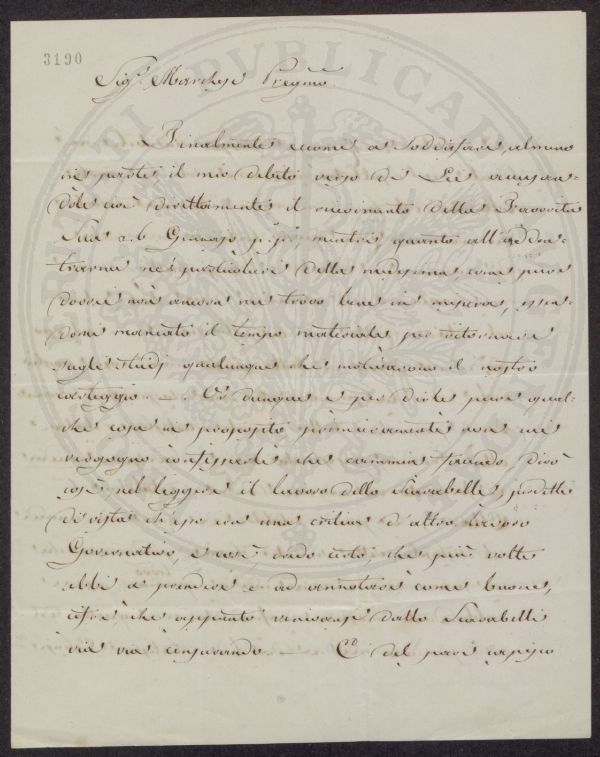 3190
Sig.r Marchese Pregmo
Finalmente eccomi a soddisfare, almeno
in parte il mio debito verso di Lei accusan-
dole così direttamente il ricevimento della Favorita
Sua a.b Gennajo p.p. mentre quanto all'adden-
trarmi ne' particolari della medesima come pure
dovrei non ancora mi trovo bene in misura, essen-
domi mancato il tempo materiale per ritornare
sugli studj qualunque che motivarono il nostro
carteggio. — Or dunque e per dirle pure qual-
che cosa a proposito primieramente non mi
vergogno confessarle che cammin facendo, dirò
così nel leggere il lavoro dello Scarabelli, perdetti
di vista ch'esso era una critica d'altro lavoro
Governativo, e così credo certo, che più volte
ebbi a prendere e ad annotare come buone,
cifre che appunto venivansi dallo Scarabelli
via via censurando. — Del pari capisco